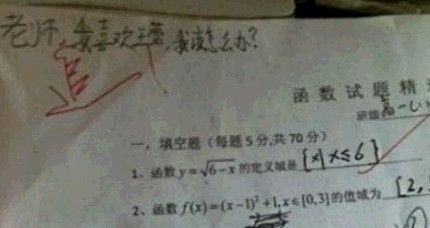 老师,我喜欢 我该怎么办?
追
函数试题精
班级高一(
一、填空题(每题5分,共70分)
1、函数y=√6-x 的定义域是 {x|x≤6}
2、函数f(x)=(x-1)²+1,x∈[0,3]的值域为 [2,